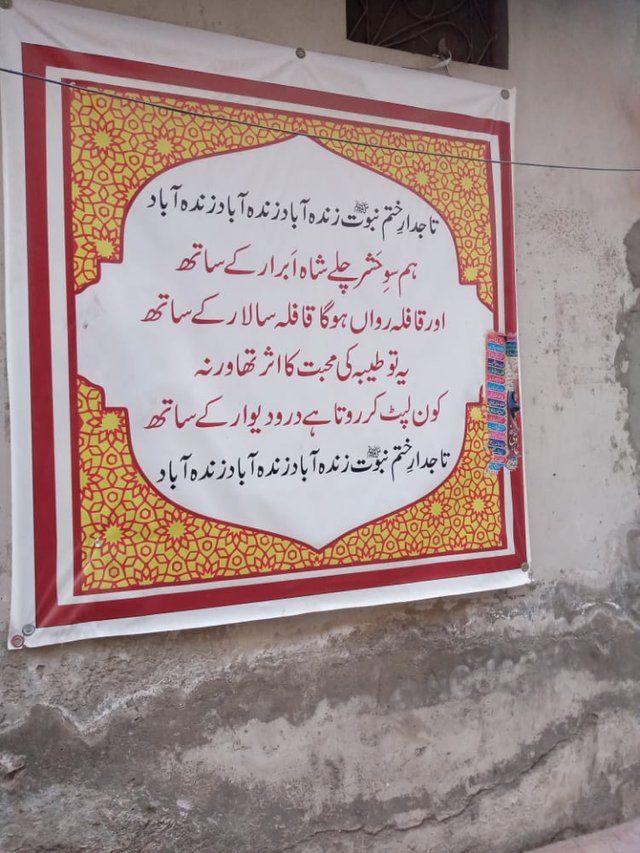 تاجدارِ ختم نبوتﷺ زندہ آباد زندہ آباد زندہ آباد
ہم سوِ حَشر چلے شاہ اَبرار کے ساتھ
اور قافلہ رواں ہوگا قافلہ سالار کے ساتھ
یہ تو طیبہ کی محبت کا اثر تھا ورنہ
کون لپٹ کر روتا ہے در و دیوار کے ساتھ
تاجدارِ ختم نبوتﷺ زندہ آباد زندہ آباد زندہ آباد